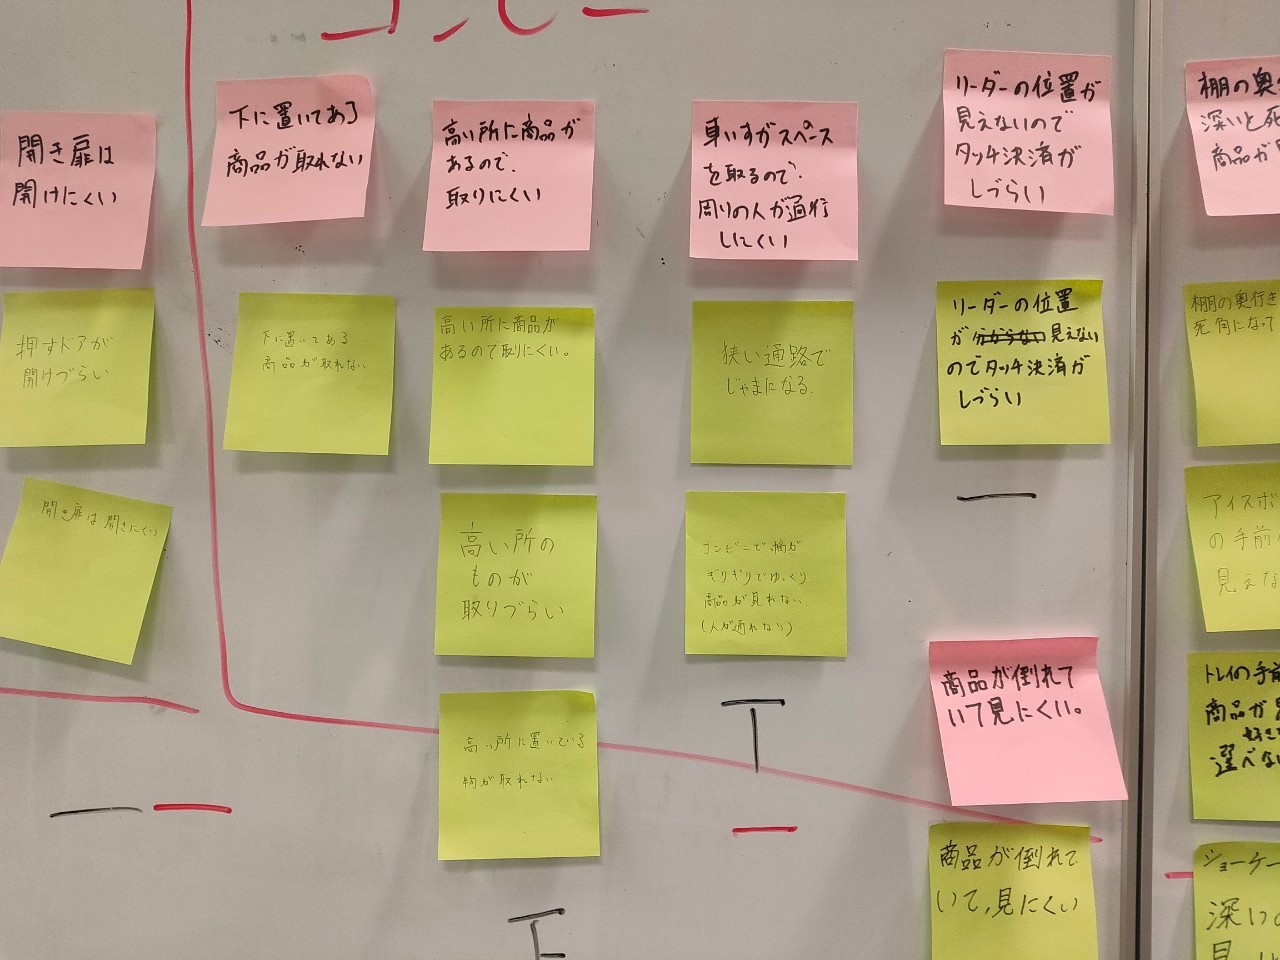 開き扉は
開けにくい
押すドアが
開けづらい
開き扉は開きにくい
下に置いてある
商品が取れない
下に置いてある
商品が取れない
高い所に商品が
あるので、
取りにくい
高い所に商品が
あるので取りにくい。
高い所の
ものが
取りづらい
高い所に置いている
物が取れない
車いすがスペース
を取るので、
周りの人が通行
しにくい
狭い通路で
じゃまになる。
コンビニで幅が
ギリギリでゆっくり
商品が見れない
(人が通れない)
リーダーの位置が
見えないので
タッチ決済が
しづらい
リーダーの位置
が見えない
のでタッチ決済が
しづらい
商品が倒れて
いて見にくい。
商品が倒れて
いて、見にくい
棚の奥
深いと死
商品が
棚の奥行き
死角になって
アイスボ
の手前
見えな
トレイの手前
商品が見
好き
選べない
ショーケー
深いの
見